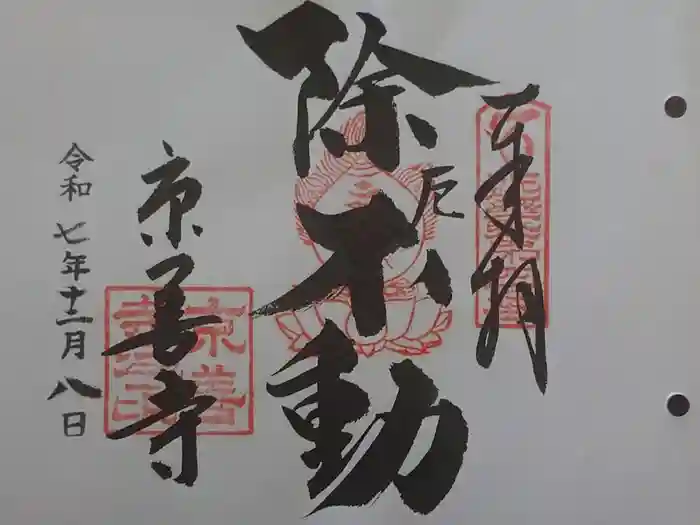 奉拝
除厄不動
京善寺
令和七年十二月八日
京善寺